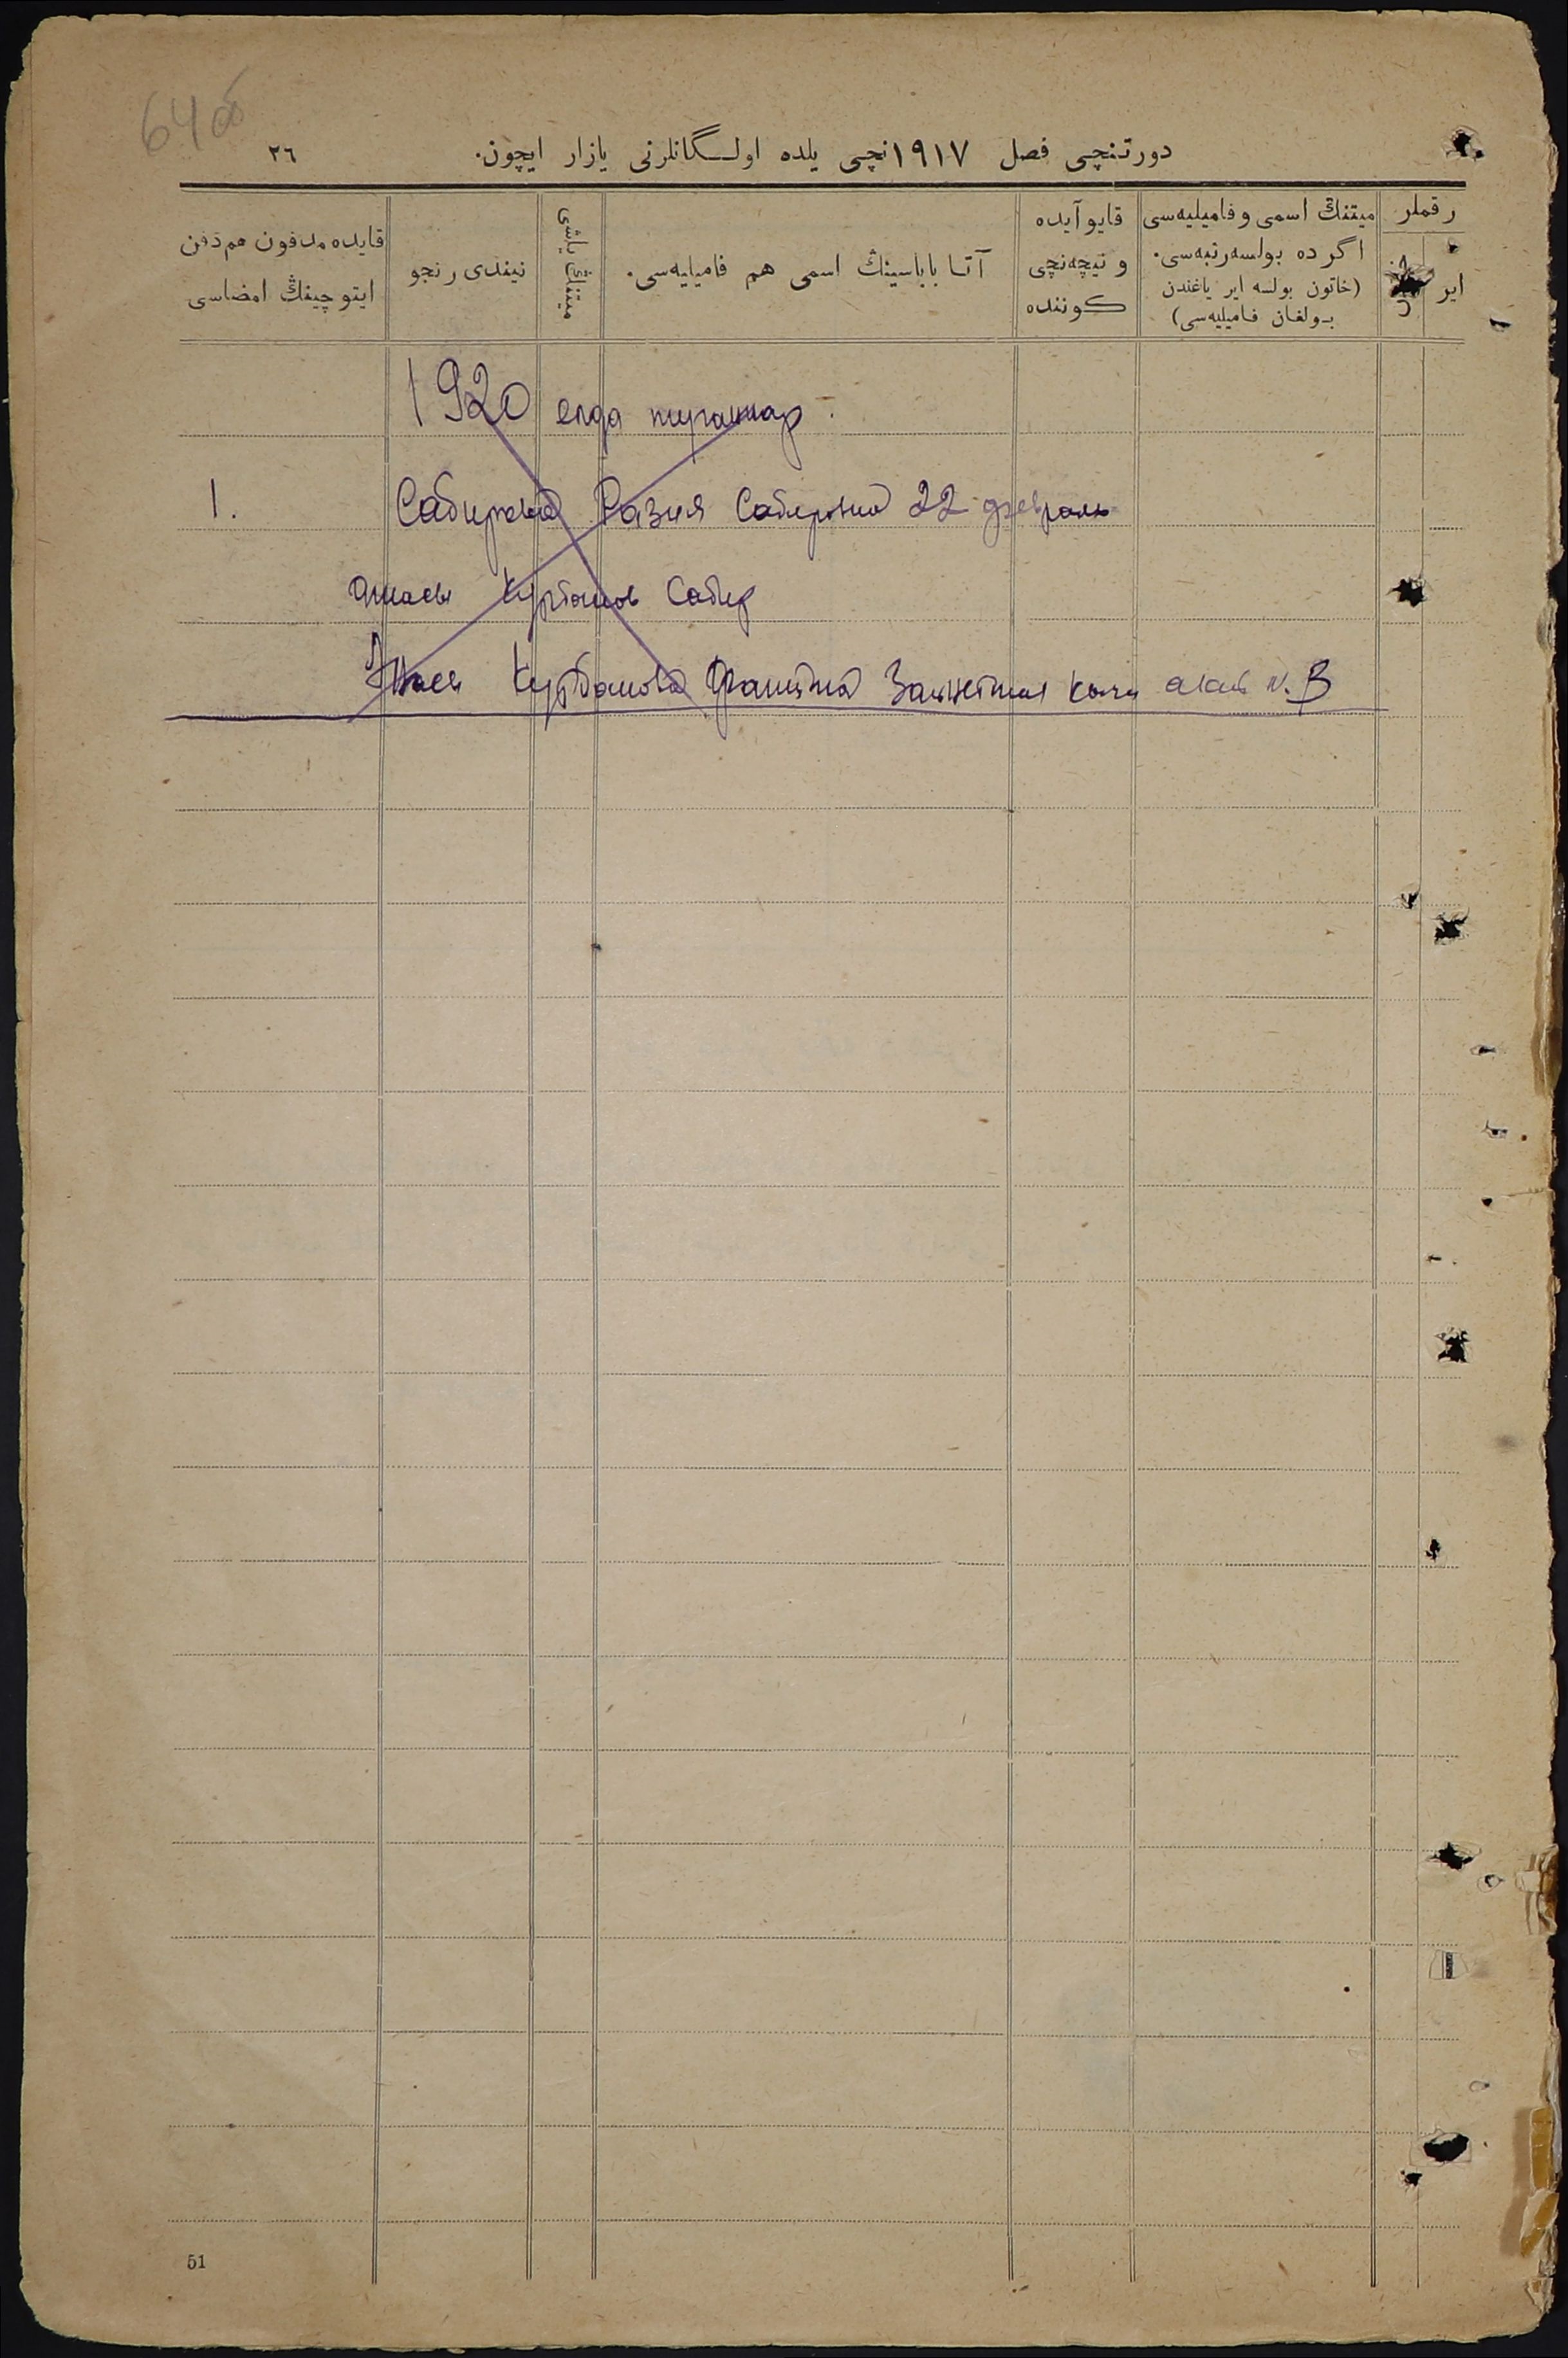 64об
دورتنچی فصل ١٩١٧نچی یلده اولگانلرنی یازار ایچون.
٢٦
رقملر
ایر
میتنڭ اسمی و فامیلیه‌سی
اگرده بولسه رتبه‌سی.
(خاتون بولسه ایر یاغندن
بولغان فامیلیه‌سی)
قایو آیده
و نیچه‌نچی
کوننده
آتا باباسینڭ اسمی هم فامیلیه‌سی.
میتنڭ یاشی
نیندی رنجو
قایده مدفون هم دفن
ایتوچینڭ امضاسی
1920 елда туганнар.
1. Сабирова Разия Сабировна 22 февраль
Атасы Курбанов Сабир
Анасы Курбанова
51